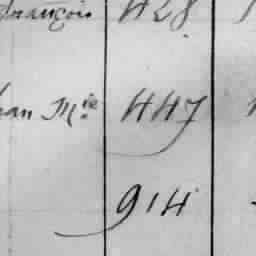 François 428
Jean Mie 447
914